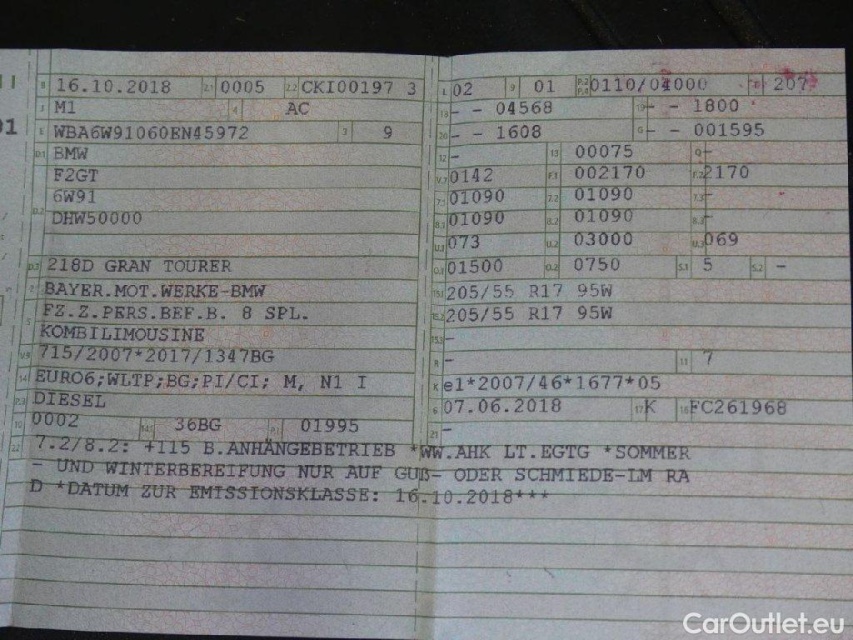 B 16.10.2018 2.1 0005 2.2 CKI00197 3
J M1 4 AC
E WBA6W91060EN45972 3 9
D.1 BMW
F2GT
6W91
D.2 DHW50000
D.3 218D GRAN TOURER
2 BAYER.MOT.WERKE-BMW
5 FZ.Z.PERS.BEF.B. 8 SPL.
KOMBILIMOUSINE
V.9 715/2007*2017/1347BG
14 EURO6;WLTP;BG;PI/CI; M, N1 I
P.3 DIESEL
10 0002 14.1 36BG P.1 01995
L 02 9 01 P.2 P.4 0110/04000 T 207
18 - - 04568 19 - - 1800
20 - - 1608 G - - 001595
12 - 13 00075 Q -
V.7 0142 F.1 002170 F.2 2170
7.1 01090 7.2 01090 7.3 -
8.1 01090 8.2 01090 8.3 -
U.1 073 U.2 03000 U.3 069
O.1 01500 O.2 0750 S.1 5 S.2 -
15.1 205/55 R17 95W
15.2 205/55 R17 95W
15.3 -
R - 11 7
K e1*2007/46*1677*05
6 07.06.2018 17 K 16 FC261968
21 -
22 7.2/8.2: +115 B.ANHÄNGEBETRIEB *WW.AHK LT.EGTG *SOMMER
- UND WINTERBEREIFUNG NUR AUF GUß- ODER SCHMIEDE-LM RA
D *DATUM ZUR EMISSIONSKLASSE: 16.10.2018***
CarOutlet.eu